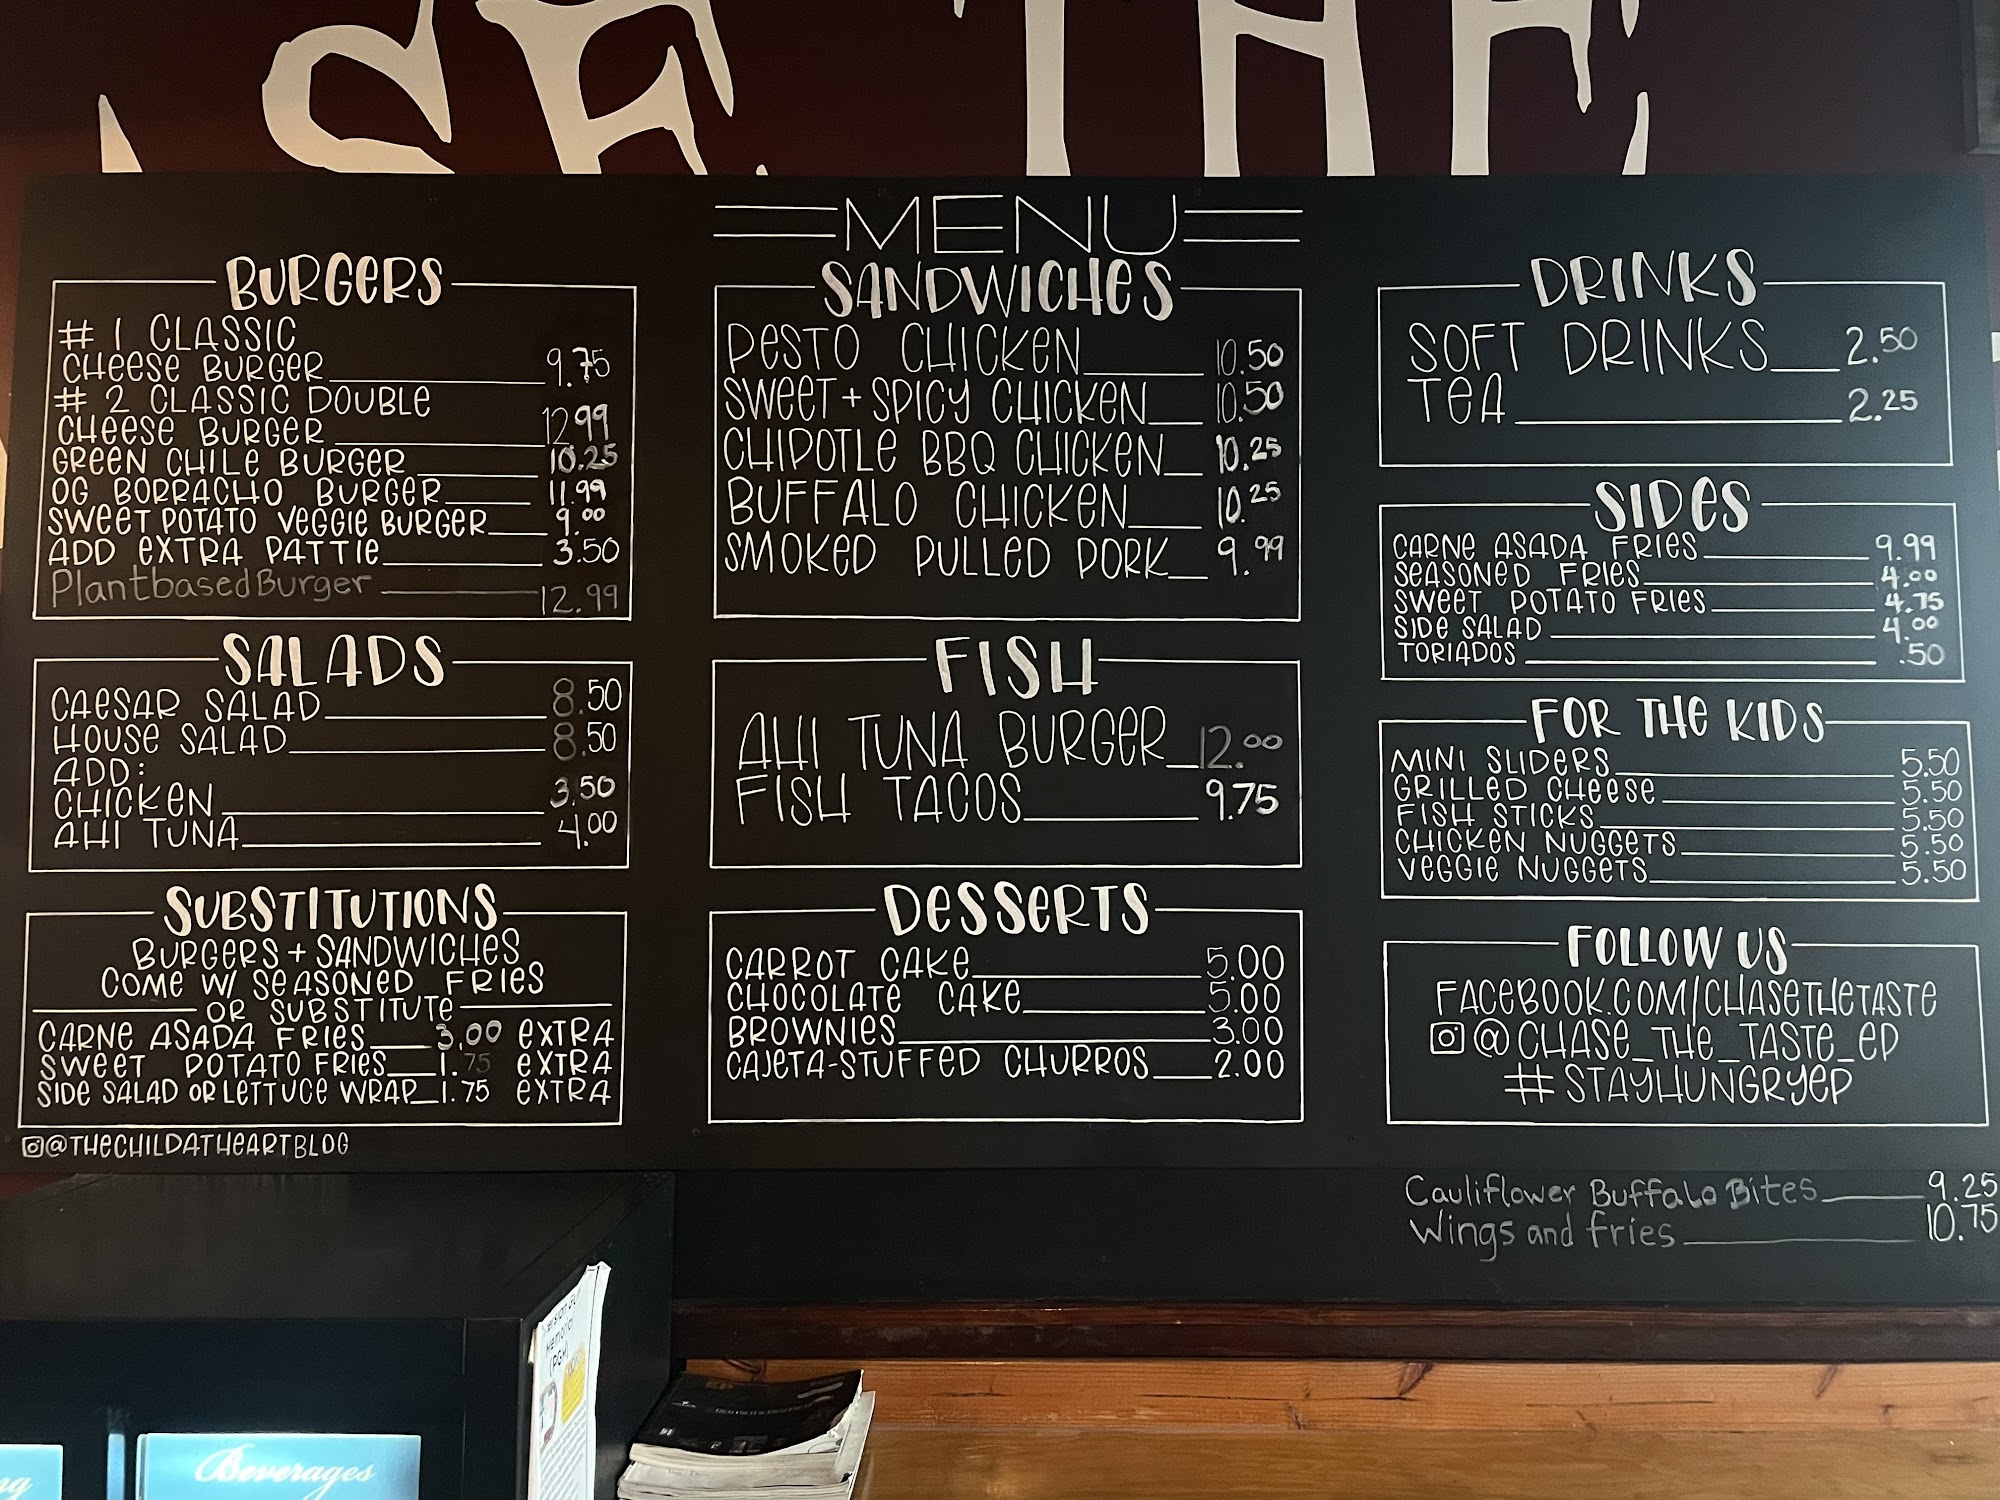 SE THE
MENU
BURGERS
# 1 CLASSIC
CHEESE BURGER 9.75
# 2 CLASSIC DOUBLE
CHEESE BURGER 12.99
GREEN CHILE BURGER 10.25
OG BORRACHO BURGER 11.99
SWEET POTATO VEGGIE BURGER 9.00
ADD EXTRA PATTIE 3.50
Plantbased Burger 12.99
SALADS
CAESAR SALAD 8.50
HOUSE SALAD 8.50
ADD:
CHICKEN 3.50
AHI TUNA 4.00
SUBSTITUTIONS
BURGERS + SANDWICHES
COME W/ SEASONED FRIES
OR SUBSTITUTE
CARNE ASADA FRIES 3.00 EXTRA
SWEET POTATO FRIES 1.75 EXTRA
SIDE SALAD OR LETTUCE WRAP 1.75 EXTRA
@THECHILDATHEARTBLOG
SANDWICHES
PESTO CHICKEN 10.50
SWEET + SPICY CHICKEN 10.50
CHIPOTLE BBQ CHICKEN 10.25
BUFFALO CHICKEN 10.25
SMOKED PULLED PORK 9.99
FISH
AHI TUNA BURGER 12.00
FISH TACOS 9.75
DESSERTS
CARROT CAKE 5.00
CHOCOLATE CAKE 5.00
BROWNIES 3.00
CAJETA-STUFFED CHURROS 2.00
DRINKS
SOFT DRINKS 2.50
TEA 2.25
SIDES
CARNE ASADA FRIES 9.99
SEASONED FRIES 4.00
SWEET POTATO FRIES 4.75
SIDE SALAD 4.00
TORIADOS .50
FOR THE KIDS
MINI SLIDERS 5.50
GRILLED CHEESE 5.50
FISH STICKS 5.50
CHICKEN NUGGETS 5.50
VEGGIE NUGGETS 5.50
FOLLOW US
FACEBOOK.COM/CHASETHETASTE
@CHASE_THE_TASTE_EP
#STAYHUNGRYEP
Cauliflower Buffalo Bites 9.25
Wings and fries 10.75
Memorial
(PGM)
Beverages